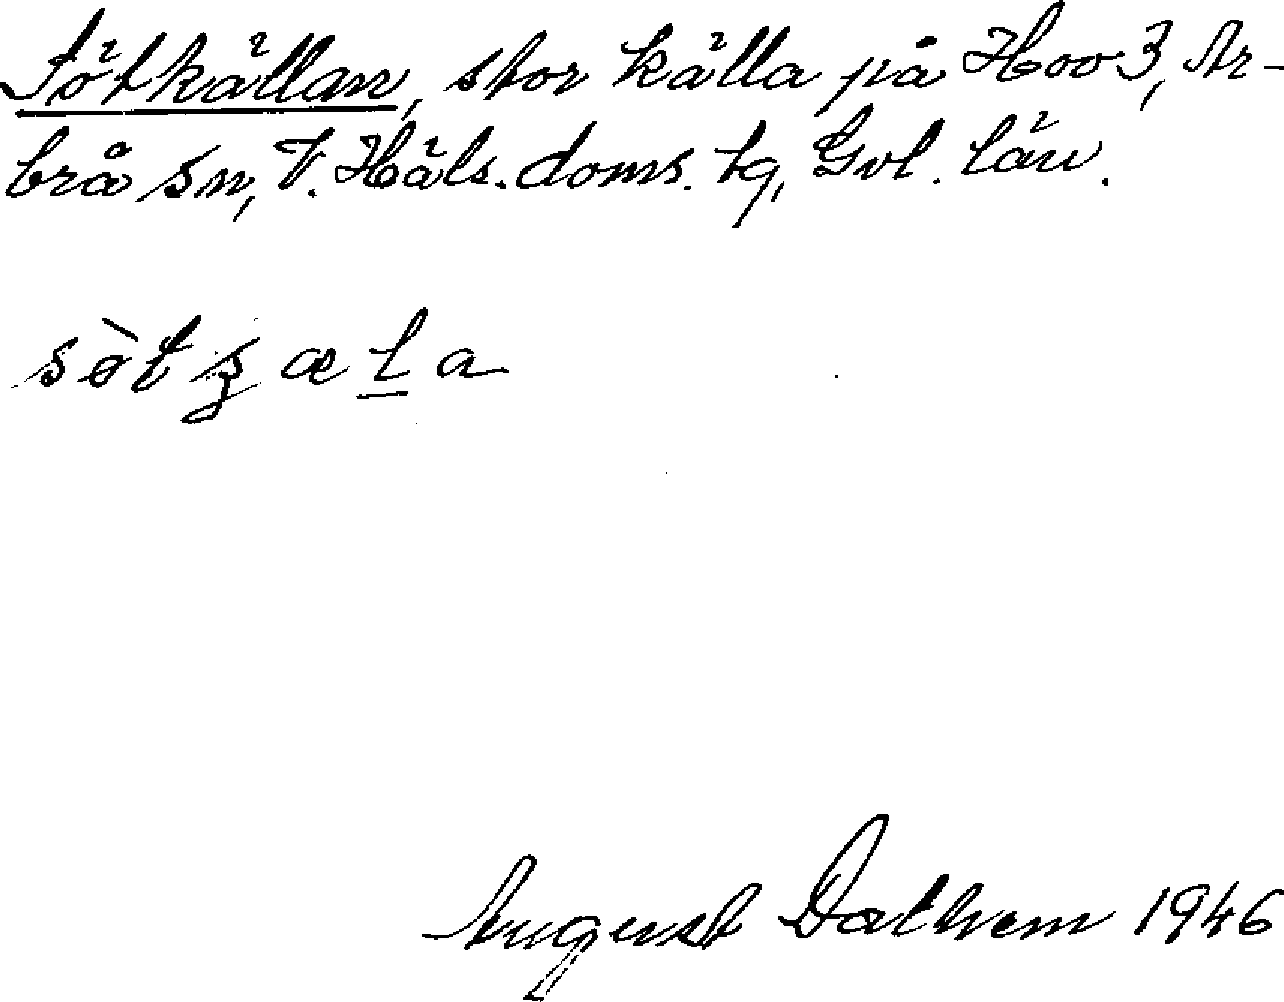 Sötkällan, stor källa på Hov 3, Ar-
brå sn, V. Häls. doms. tg, Gvl. län.
sò̀tʂæḻa
August Dathem 1946